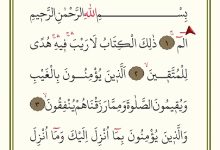 بِسْمِ اللهِ الرَّحْمٰنِ الرَّحِيْمِ
الٓمّٓ ۝١ ذٰلِكَ الْكِتَابُ لَا رَيْبَ فِيْهِ هُدًى
لِّلْمُتَّقِيْنَ ۝٢ الَّذِيْنَ يُؤْمِنُوْنَ بِالْغَيْبِ
وَيُقِيْمُوْنَ الصَّلٰوةَ وَمِمَّا رَزَقْنَاهُمْ يُنْفِقُوْنَ ۝٣
وَالَّذِيْنَ يُؤْمِنُوْنَ بِمَآ أُنْزِلَ إِلَيْكَ وَمَآ أُنْزِلَ